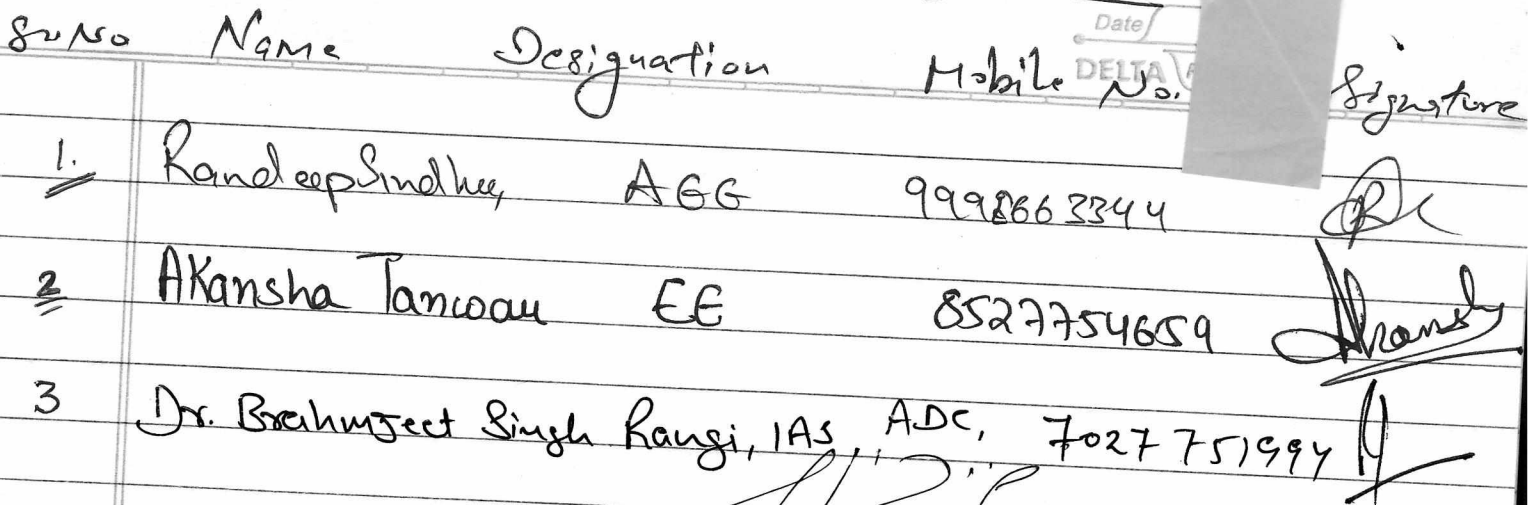 Sr No Name Designation Mobile No. Signature
Date
DELTA
1. Randeep Sindhu, AGG 9998663344
2 Akansha Tanwar EE 8527754659 Akansha
3 Dr. Brahmjeet Singh Rangi, IAS, ADC, 7027751994